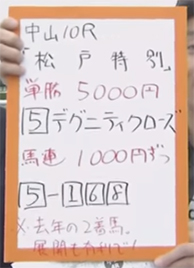 中山10R
「松戸特別」
単勝 5000円
5 デグニティクローズ
馬連 1000円ずつ
5-168
※去年の2着馬。
展開も有利で!